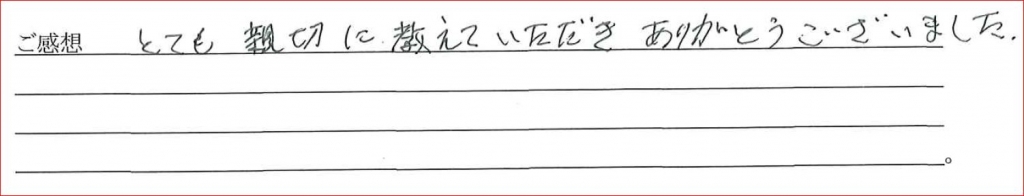 ご感想 とても親切に教えていただきありがとうございました.
。